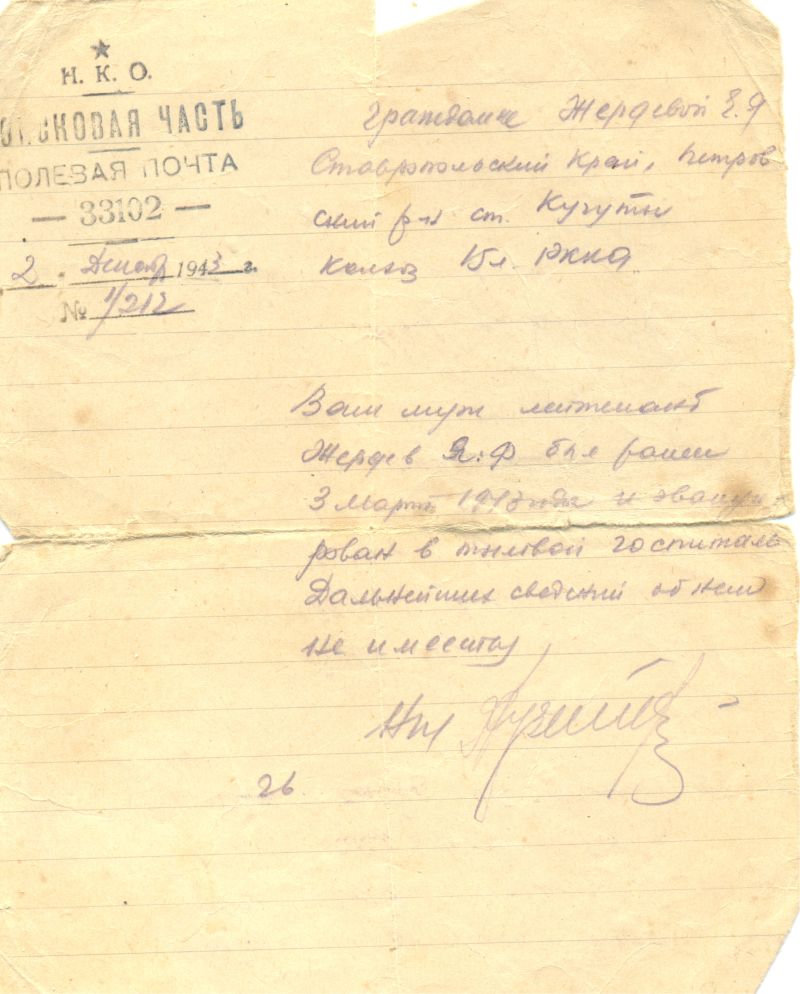 Н. К. О.
ВОИСКОВАЯ ЧАСТЬ
ПОЛЕВАЯ ПОЧТА
— 33102 —
2 Декабр 1943 г.
№ 1/212
Гражданке Жердевой Е.Я
Ставропольский Край, Петров
ский р-н ст. Кугуты
Колхоз 15л. РККА
Ваш муж лейтенант
Жердев Я.Ф был ранен
3 марта 1943 года и эвакуи-
рован в тыловой госпиталь
Дальнейших сведений об нем
не имеется
Нш
гв.